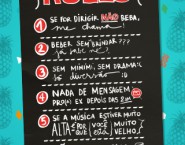 1 SE FOR DIRIGIR NÃO BEBA,
me chama
2 BEBER SEM BRINDAR???
já sabe né
3 SEM MIMIMI, SEM DRAMA!
Só diversão
4 NADA DE MENSAGEM
PRO(A) EX DEPOIS DAS
5 SE A MÚSICA ESTIVER MUITO
ALTA É POR QUE VOCÊ ESTÁ MUITO VELHO!